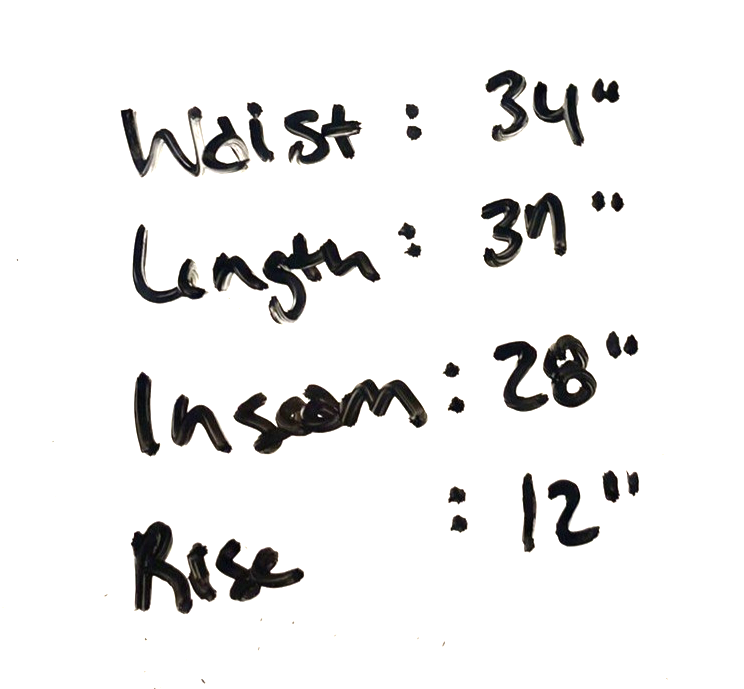 Waist : 34"
Length : 37"
Inseam : 28"
Rise : 12"